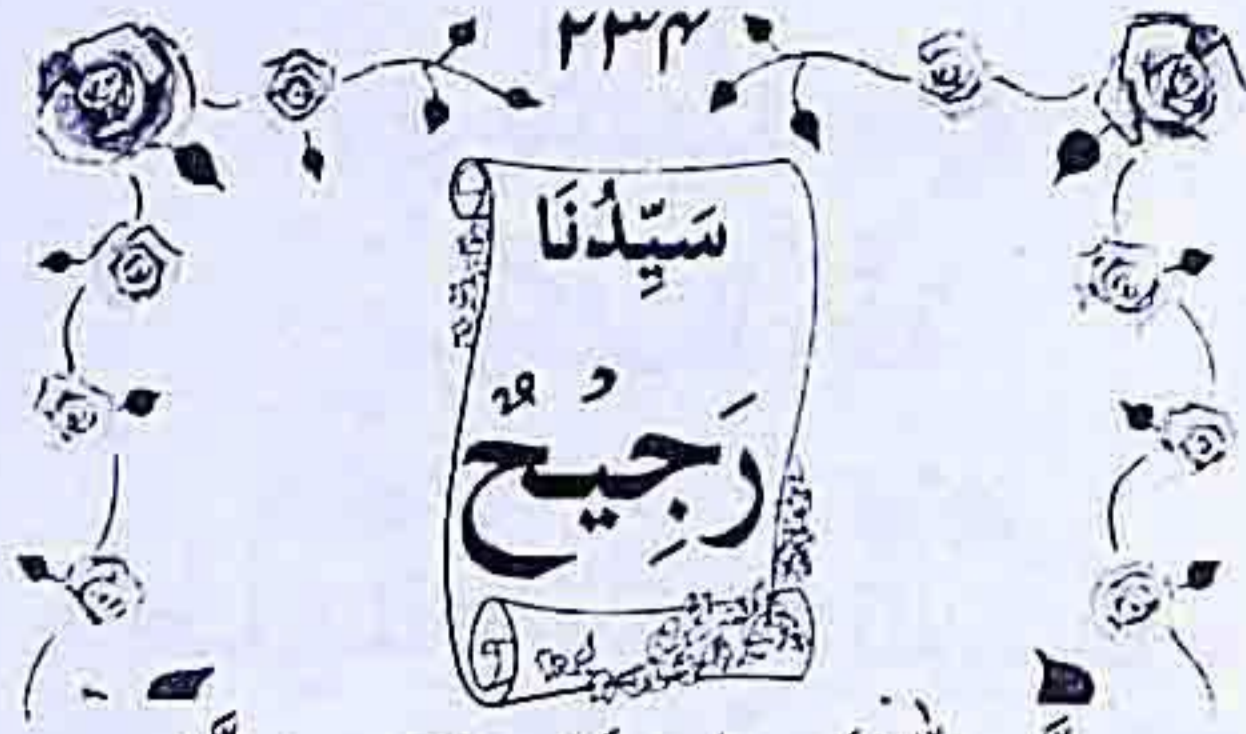 ۲۳۴
سَيِّدُنَا
رَجِيْحٌ